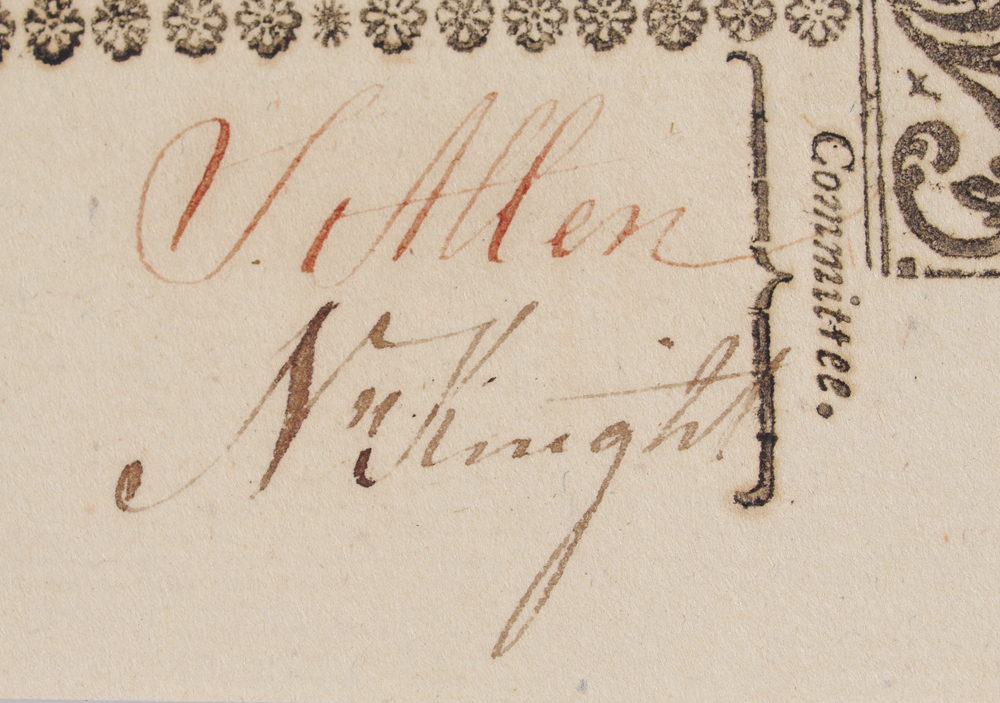 S. Allen
N Knight
Committee.